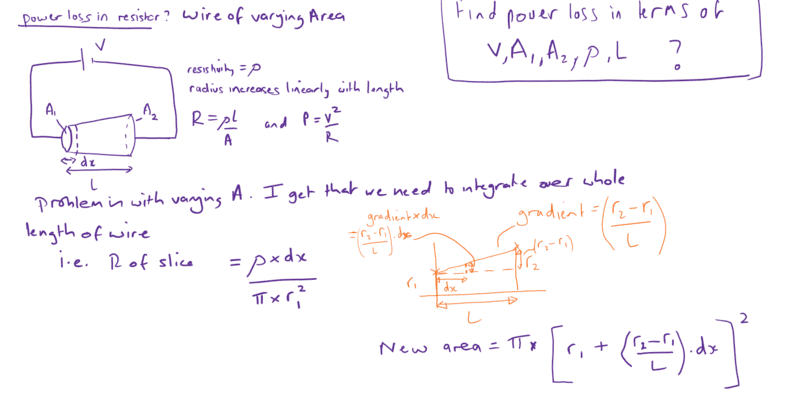 power loss in resistor? Wire of varying Area
Find power loss in terms of
V, A₁, A₂, ρ, L ?
V
resistivity = ρ
radius increases linearly with length
A₁
A₂
R = ρL/A and P = V²/R
dx
L
Problem in with varying A. I get that we need to integrate over whole
length of wire
i.e. R of slice = ρ × dx / π × r₁²
gradient × dx
= (r₂ - r₁ / L) . dx
gradient = (r₂ - r₁ / L)
(r₂ - r₁)
r₂
r₁
dx
L
New area = π × [r₁ + (r₂ - r₁ / L) . dx]²